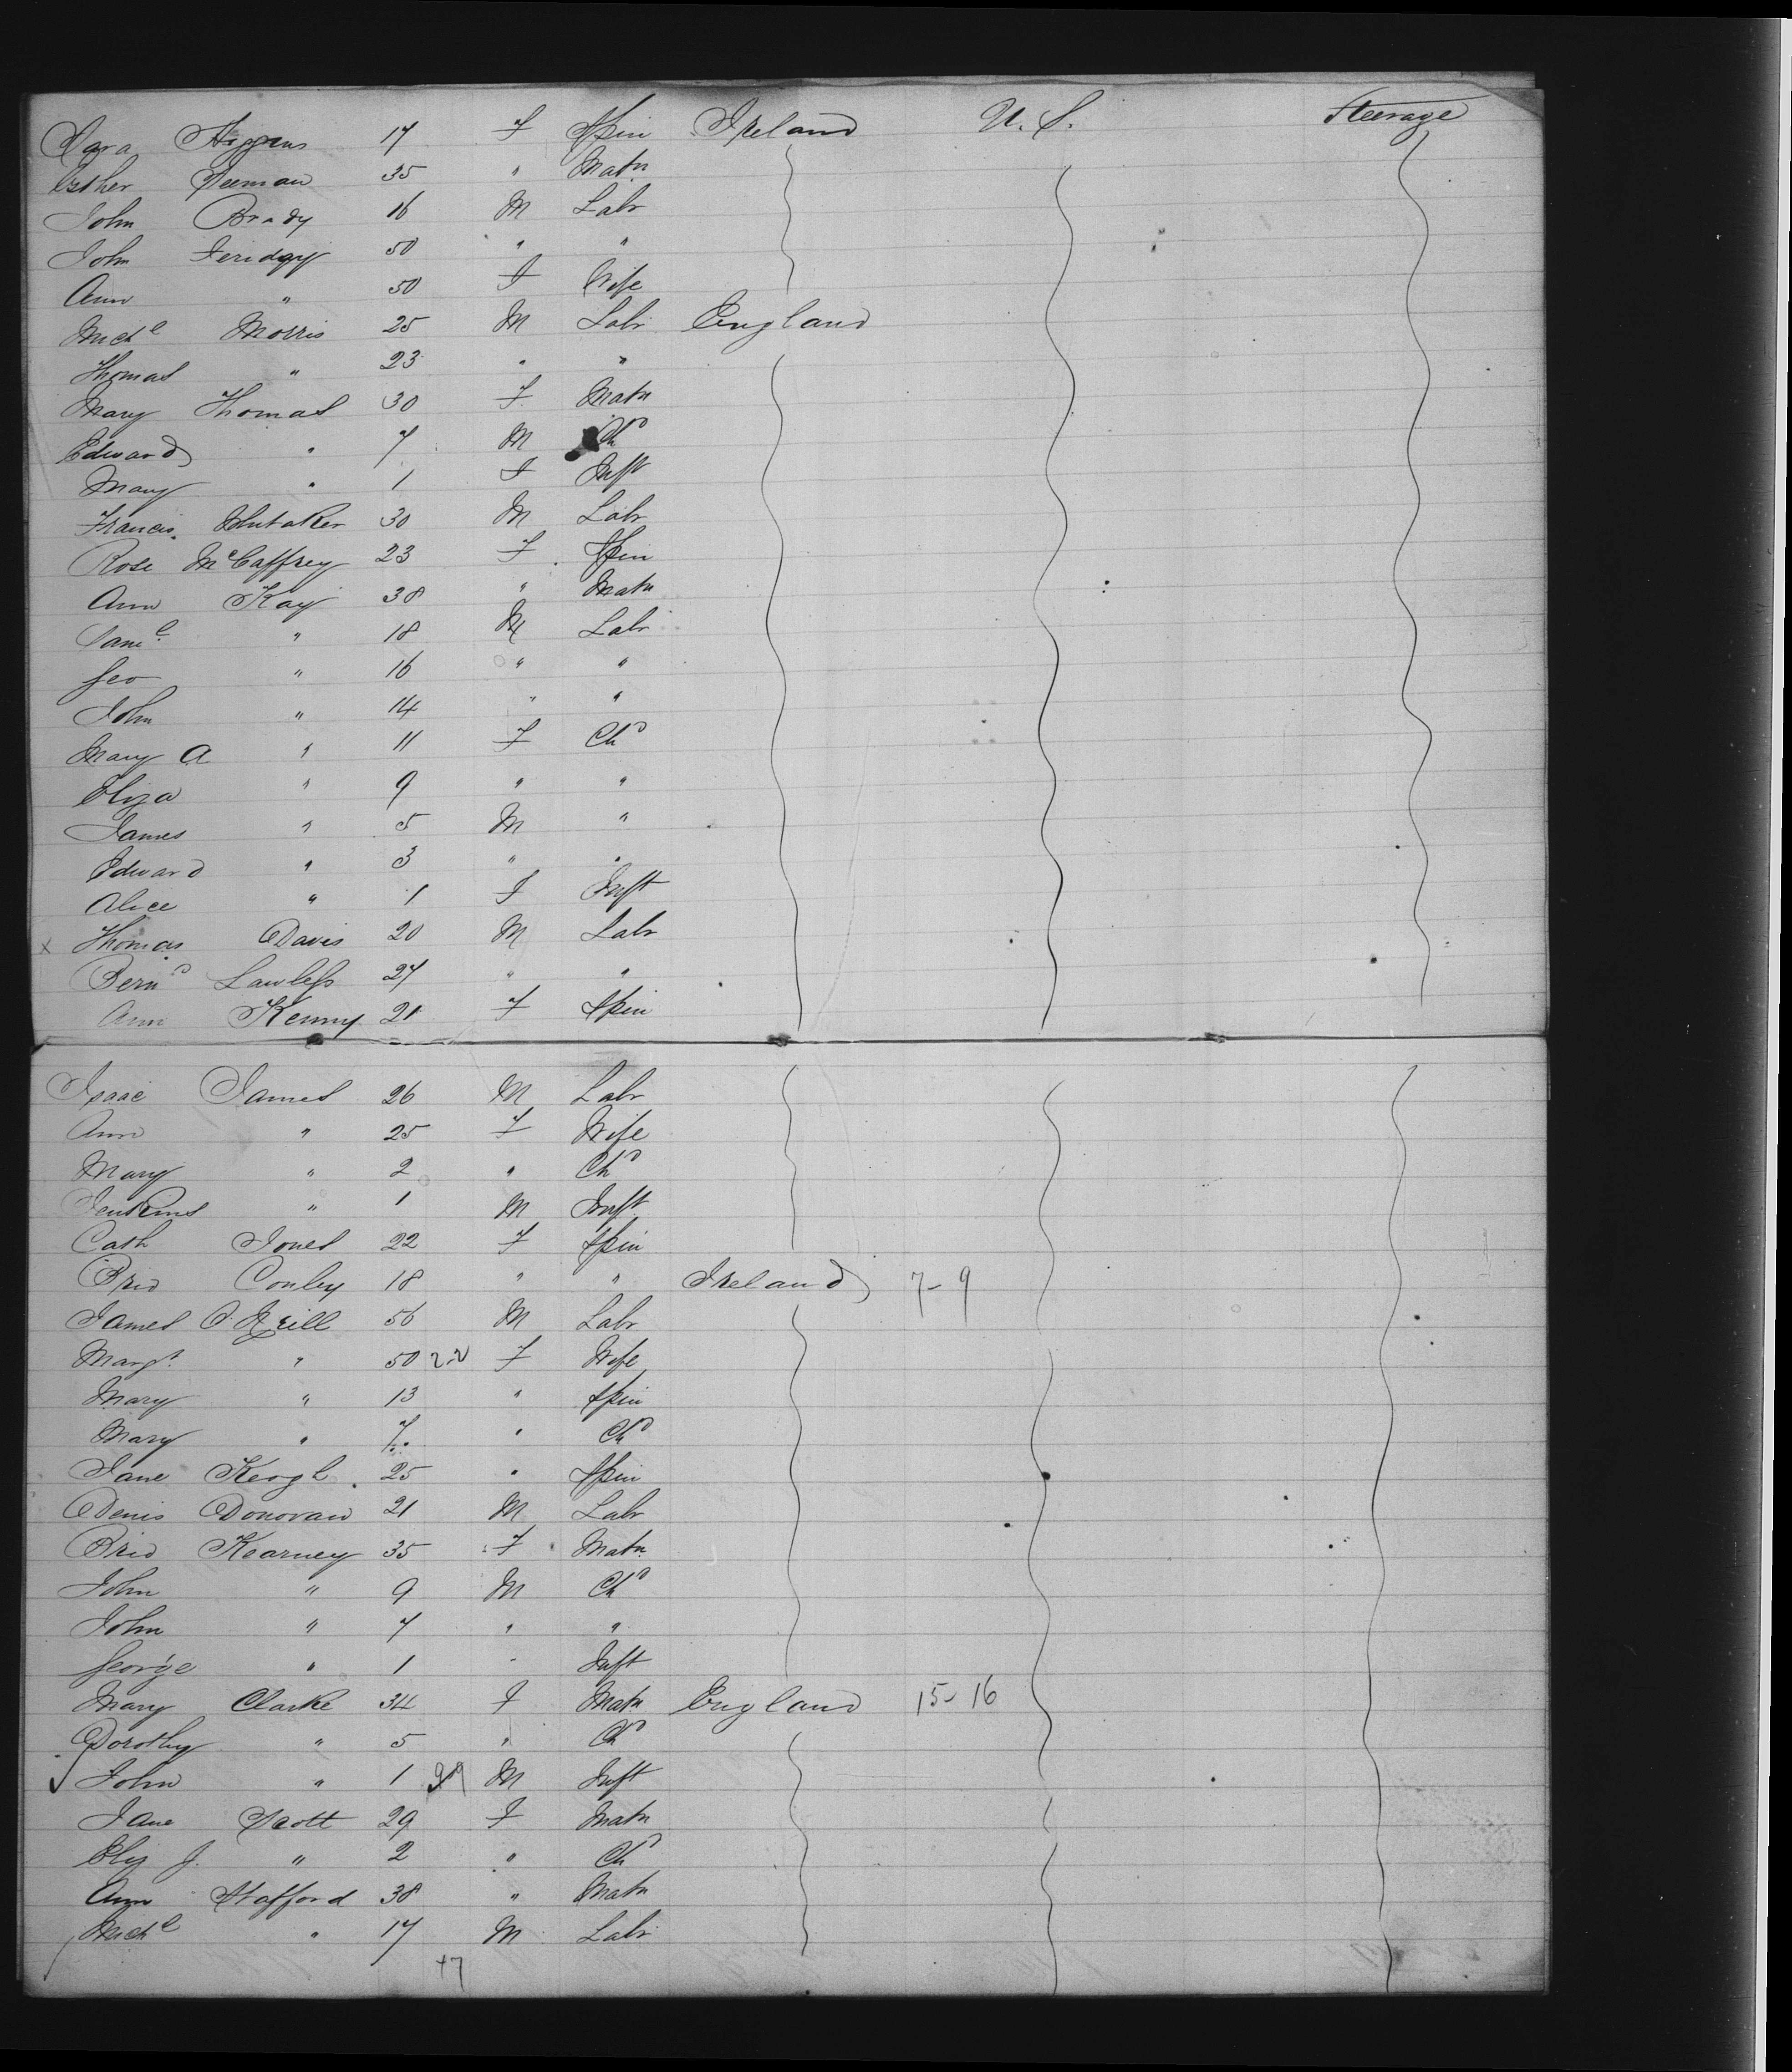 Sara Higgins 17 F Spin Ireland U.S. Steerage
Esther Seeman 35 " Matn
John Brady 16 M Labr
John 50 " "
Ann " 50 F Wife
Michl Morris 25 M Labr England
Thomas " 23 " "
Mary Thomas 30 F Matn
Edward " 7 M Chd
Mary " 1 F Inft
Francis Whitaker 30 M Labr
Rose McCaffrey 23 F Spin
Ann Kay 38 " Matn
Saml " 18 M Labr
Geo " 16 " "
John " 14 " "
Mary A " 11 F Chd
Eliza " 9 " "
James " 5 M "
Edward " 3 " "
Alice " 1 F Inft
x Thomas Davis 20 M Labr
Bernd Lawless 27 " "
Ann Kenny 21 F Spin
Isaac James 26 M Labr
Ann " 25 F Wife
Mary " 2 " Chd
Jenkins " 1 M Inft
Cath Jones 22 F Spin
Brid Conley 18 " " Ireland 7-9
James O'Neill 56 M Labr
Margt " 50 F Wife
Mary " 13 " Spin
Mary " 7 " Chd
Jane Keogh 25 " Spin
Denis Donovan 21 M Labr
Brid Kearney 35 F Matn
John " 9 M Chd
John " 7 " "
George " 1 " Inft
Mary Clarke 34 F Matn England 15-16
Dorothy " 5 " Chd
John " 1 M Inft
Jane Scott 29 F Matn
Eliz J. " 2 " Chd
Ann Stafford 38 " Matn
Michl " 17 M Labr
47